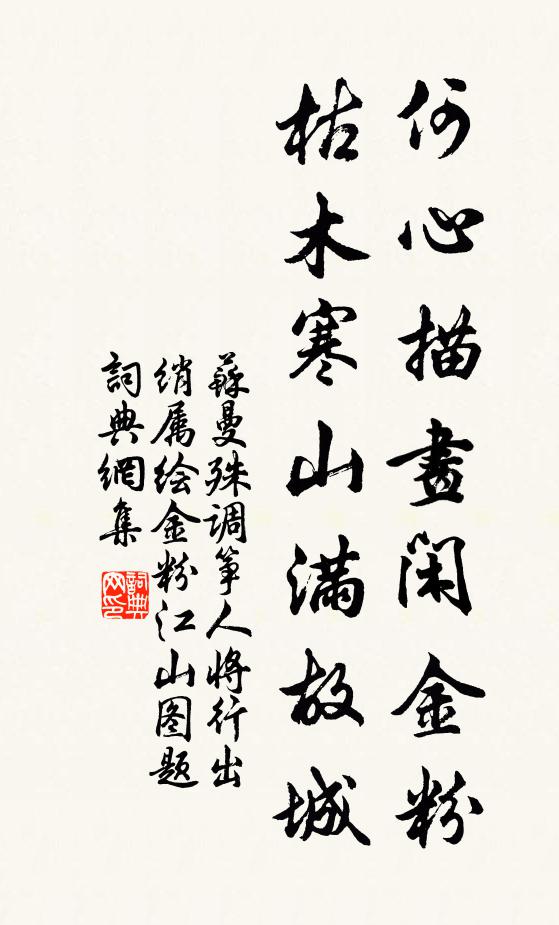 何心描畫閑金粉
枯木寒山滿故城
蘇曼殊调筝人将行出
绡属绘金粉江山图题
詞典網集
詞典
网印